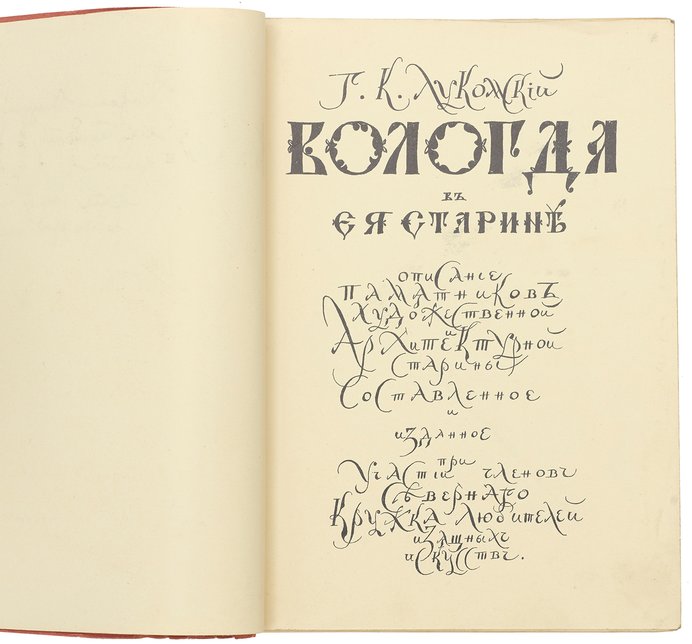 Г. К. Лукомскій
ВОЛОГДА
въ
ЕЯ СТАРИНѢ
описаніе
памятниковъ
художественной
и
Архитектурной
старины
составленное
и
изданное
при
участіи членовъ
Сѣвернаго
Кружка Любителей
изящныхъ
искусствъ.